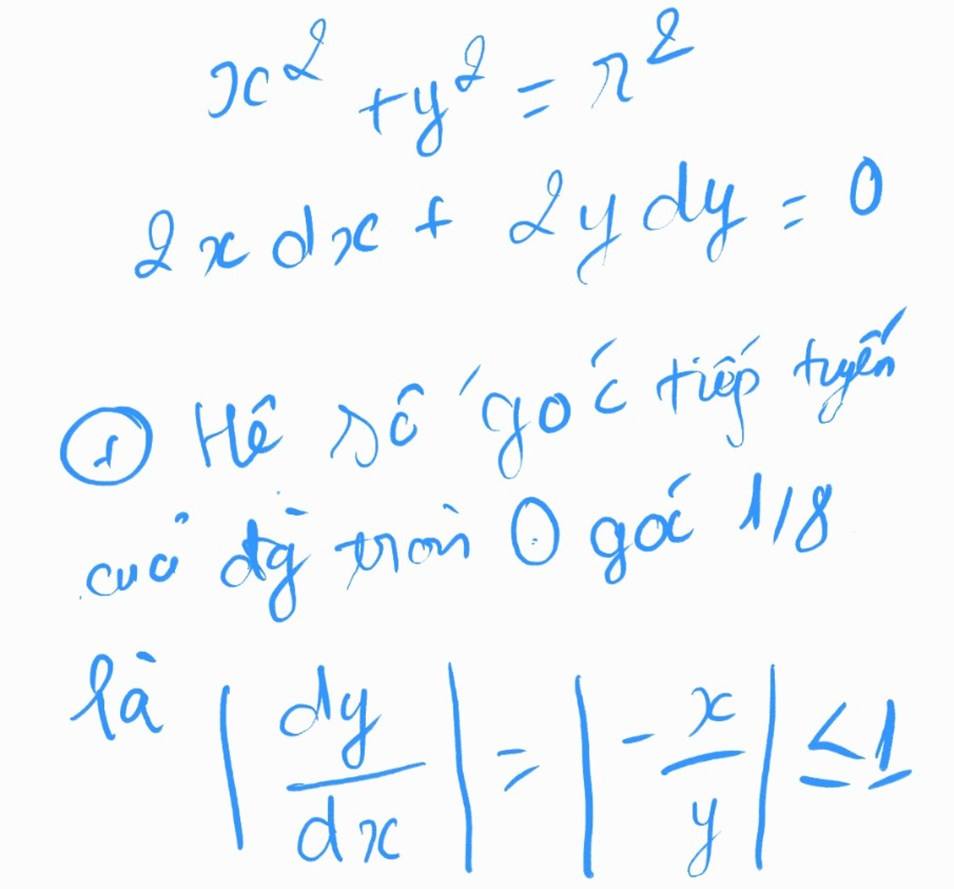 x² + y² = r²
2x dx + 2y dy = 0
① Hê số góc tiếp tuyến
của đg tròn O góc 1/8
là |dy/dx| = |-x/y| ≤ 1